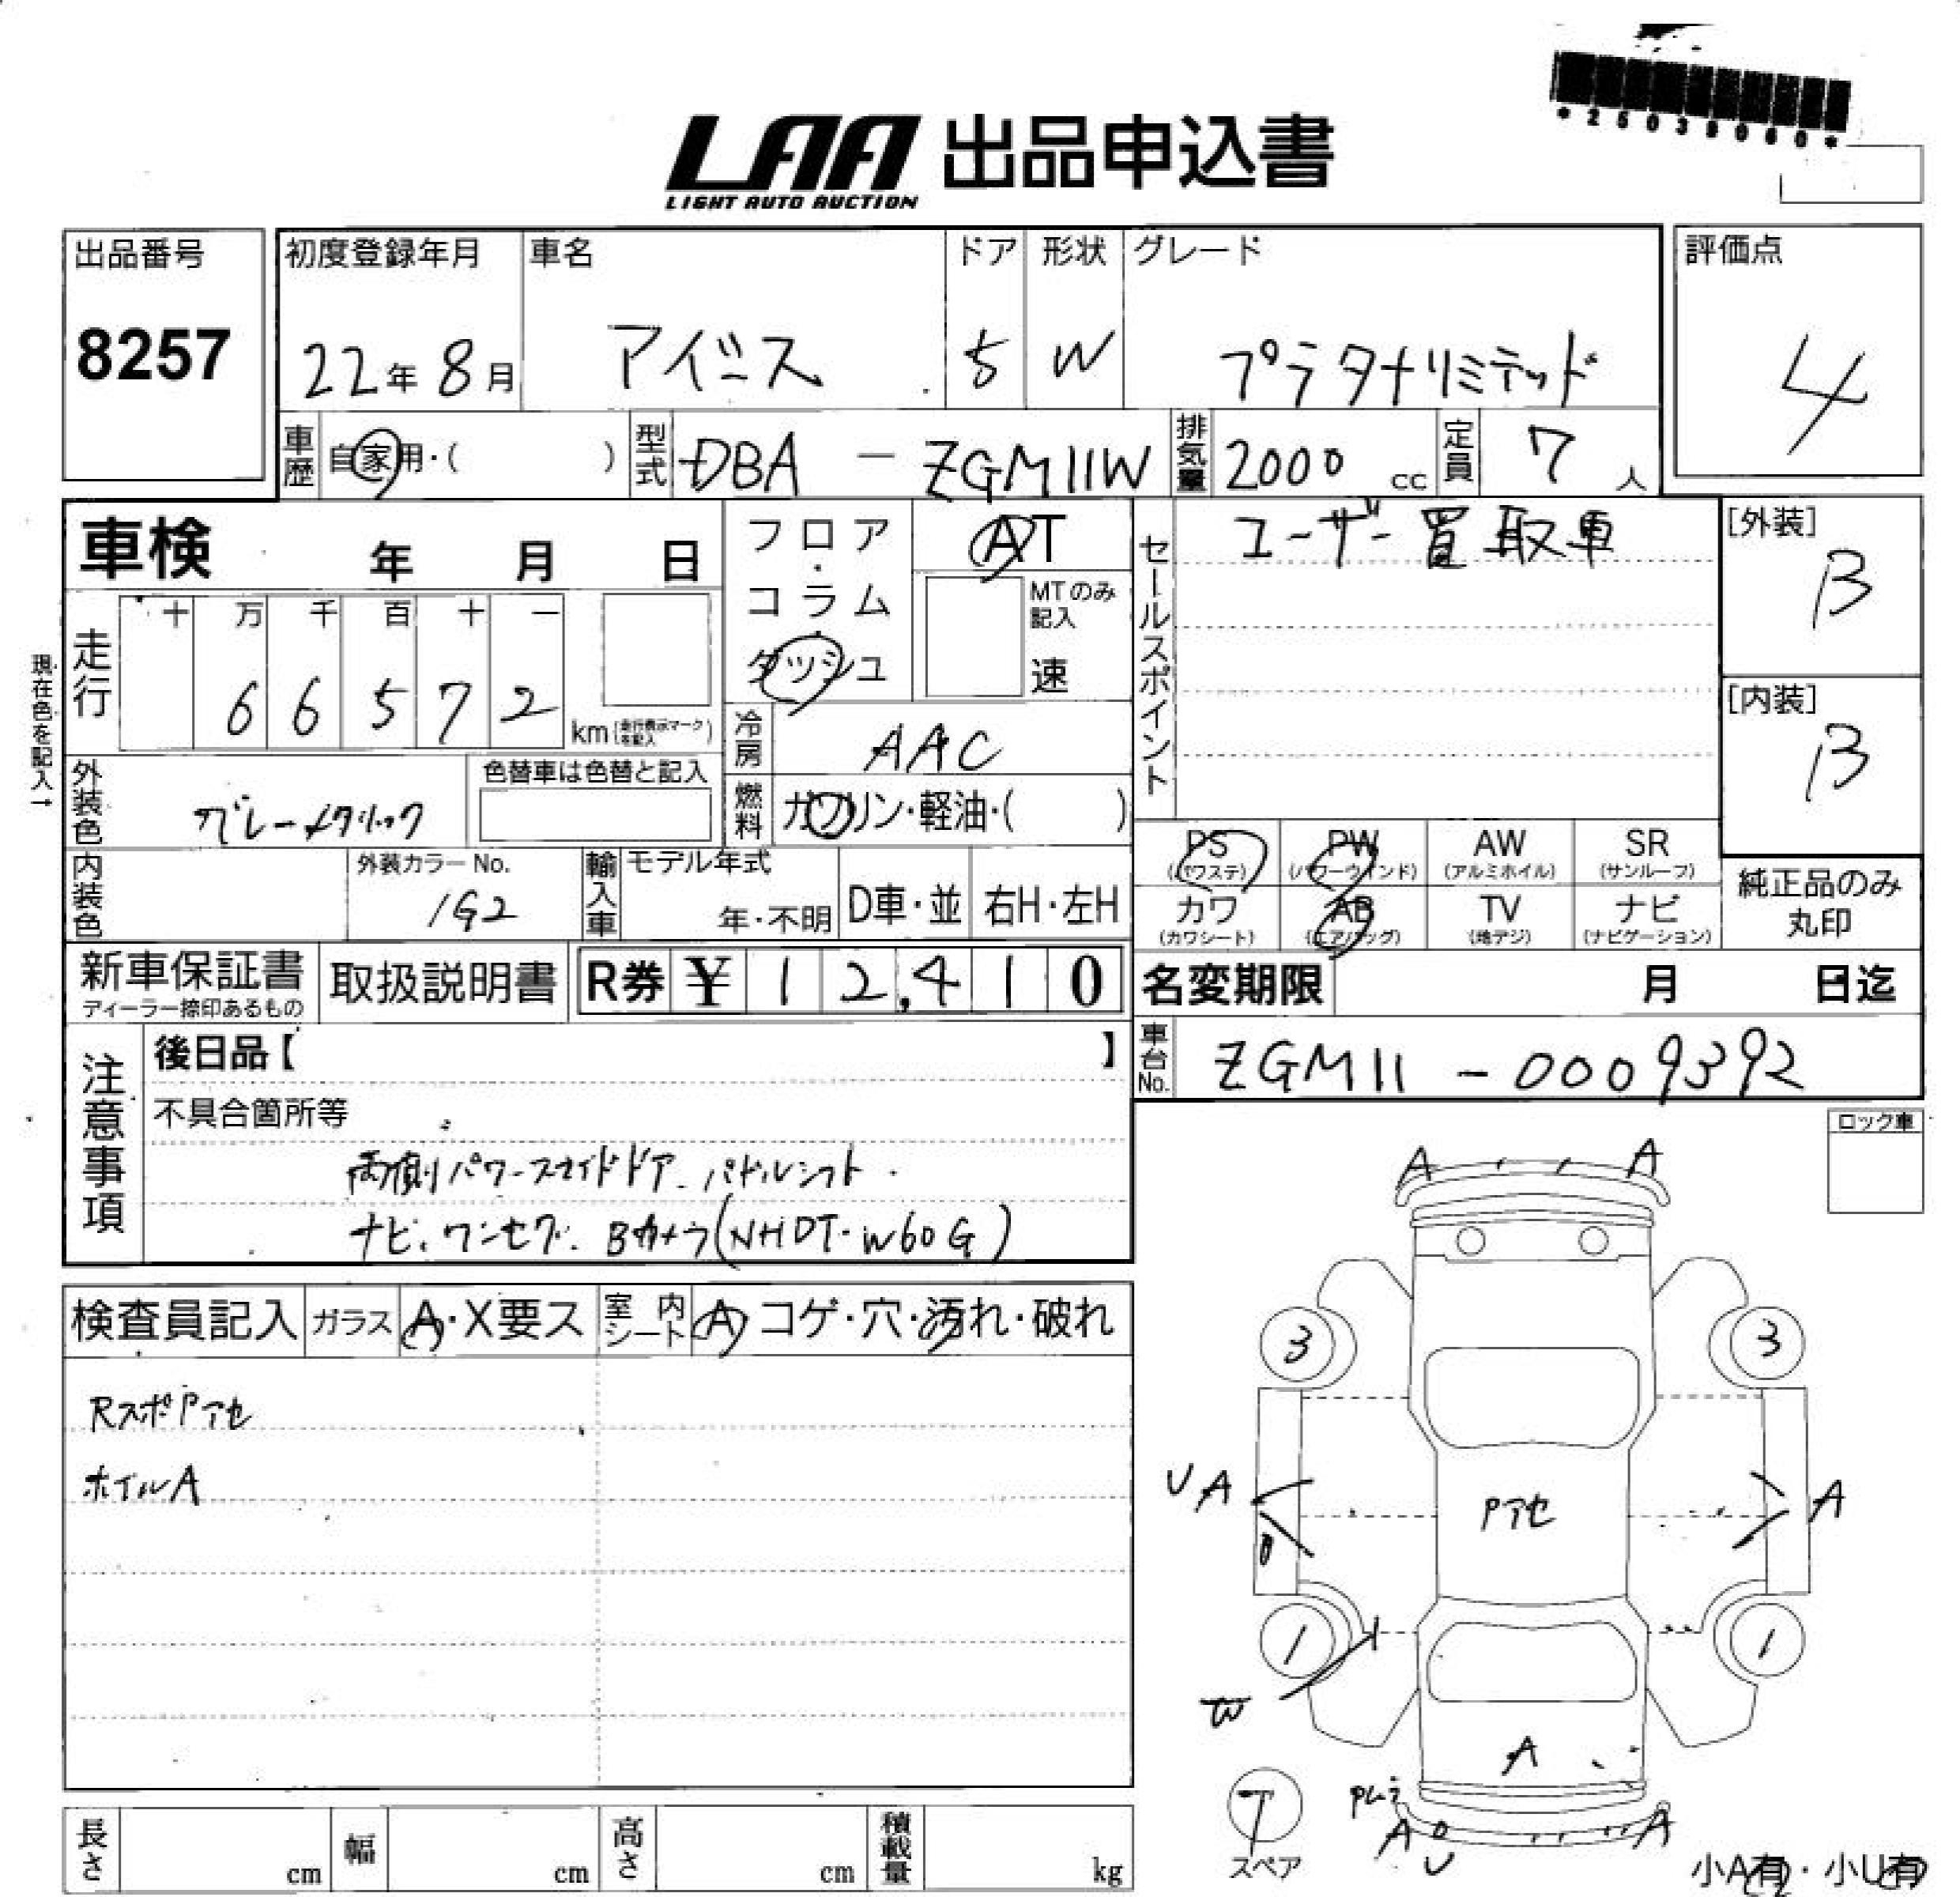 *25038060*
LAA 出品申込書
LIGHT AUTO AUCTION
出品番号
8257
初度登録年月
22年 8月
車名
アイシス
ドア
5
形状
W
グレード
プラタナリミテッド
評価点
4
車歴 自家用・( )
型式 DBA - ZGM11W
排気量 2000 cc
定員 7 人
車検 年 月 日
フロア・コラム・ダッシュ
AT
MTのみ記入
速
セールスポイント
ユーザー買取車
[外装]
B
[内装]
B
現在色を記入→
走行
十 万 千 百 十 一
6 6 5 7 2
km (走行表示マークを記入)
冷房 AAC
燃料 ガソリン・軽油・( )
外装色 グレーメタリック
色替車は色替と記入
内装色
外装カラーNo.
1G2
輸入車
モデル年式
年・不明
D車・並
右H・左H
PS (パワステ)
PW (パワーウインド)
AW (アルミホイル)
SR (サンルーフ)
カワ (カワシート)
AB (エアバッグ)
TV (地デジ)
ナビ (ナビゲーション)
純正品のみ
丸印
新車保証書
ディーラー捺印あるもの
取扱説明書
R券 ¥ 1 2,4 1 0
名変期限 月 日迄
車台No. ZGM11 - 0009392
注意事項
後日品【 】
不具合箇所等
両側パワースライドドア. パドルシフト.
ナビ. ワンセグ. Bカメラ(NHDT-W60G)
ロック車
検査員記入
ガラス A・X要ス
室内シート A コゲ・穴・汚れ・破れ
RスポPアセ
ホイルA
A A
3 3
U A
Pアセ
A
1 1
W
A
Pムラ
A U
A
T
スペア
小A有・小U有
長さ cm
幅 cm
高さ cm
積載量 kg